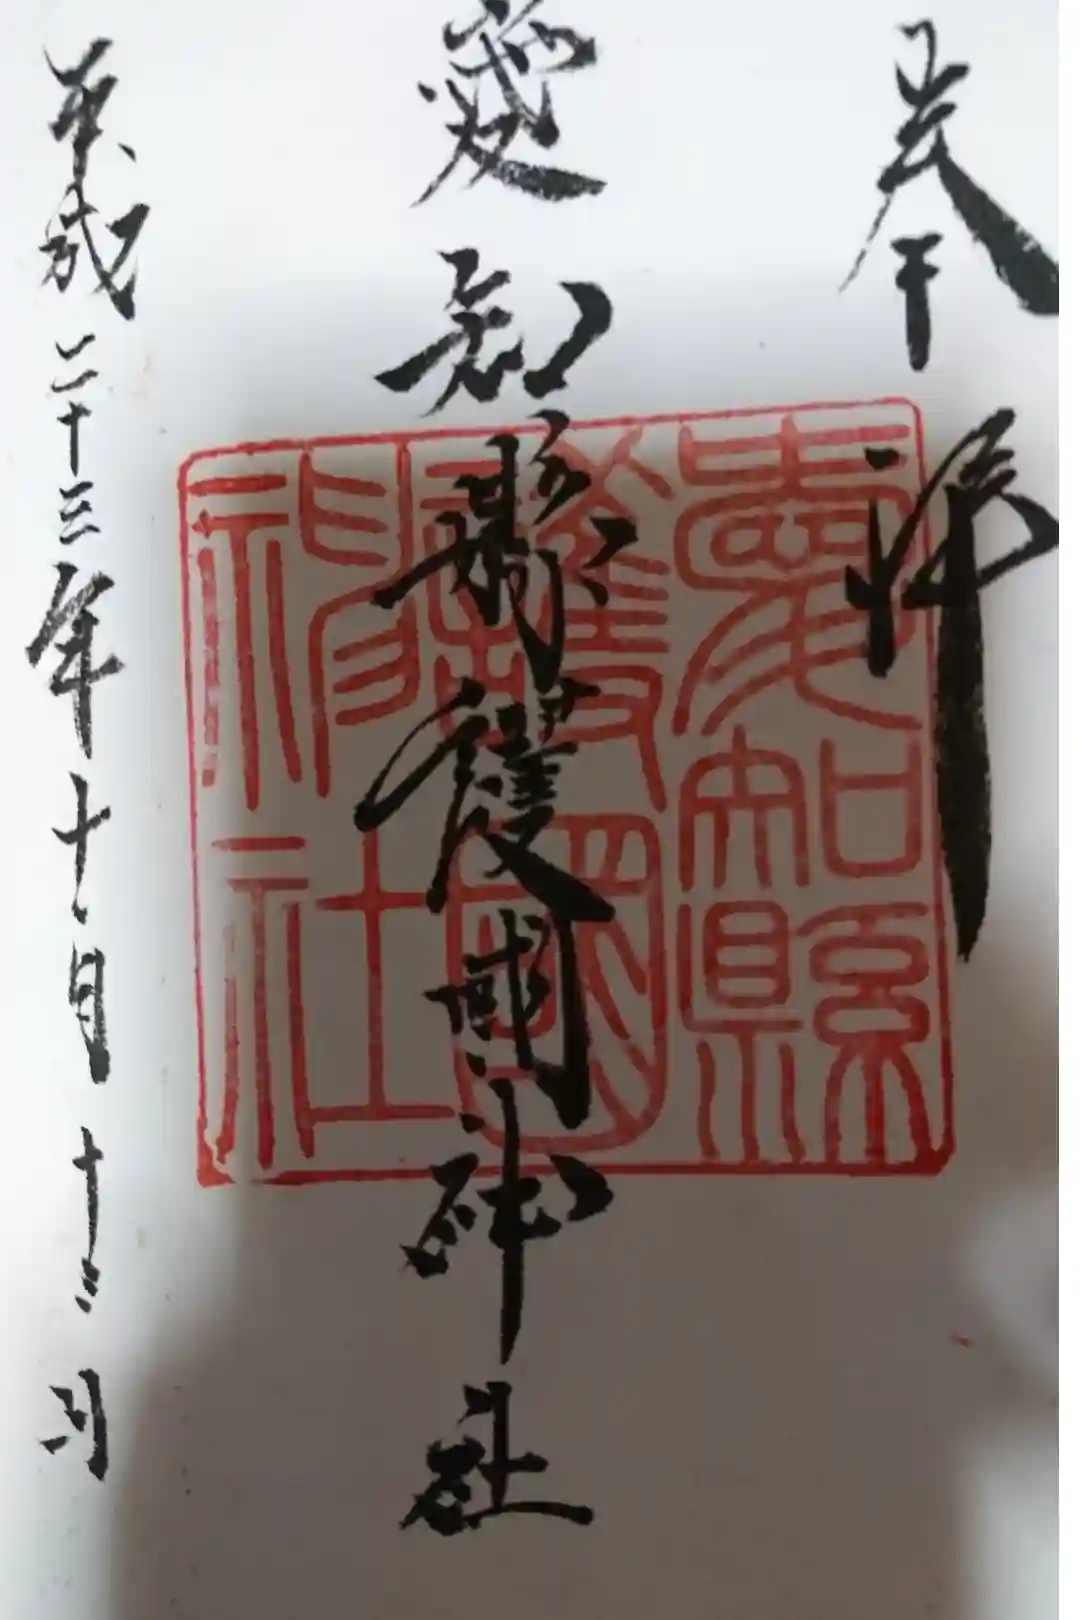 奉拝
愛知縣護國神社
平成二十三年十月十二日
愛知縣
護國
神社